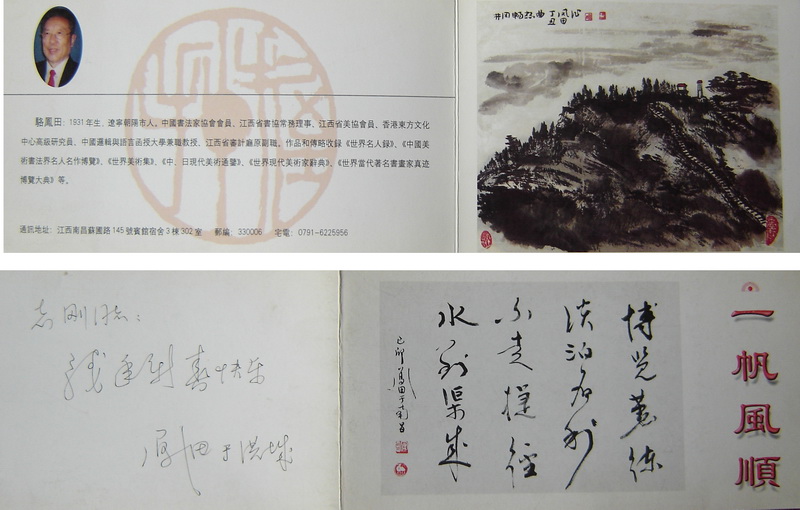 駱鳳田：1931年生，遼寧朝陽市人。中國書法家協會會員、江西省書協常務理事、江西省美協會員、香港東方文化
中心高級研究員、中國邏輯與語言函授大學兼職教授、江西省審計廳原副職。作品和傳略收錄《世界名人録》、《中國美
術書法界名人名作博覽》、《世界美術集》、《中、日現代美術通鑒》、《世界現代美術家辭典》、《世界當代著名書畫家真迹
博覽大典》等。
通訊地址：江西南昌蘇圃路145號賓館宿舍3棟302室　郵編：330006　宅電：0791-6225956
丁丑
鳳田
志刚同志：
钱年新喜快乐
鳳田于洪城
博览葱练
淡泊名利
不走捷径
水到渠成
己卯鳳田于南昌
一帆風順